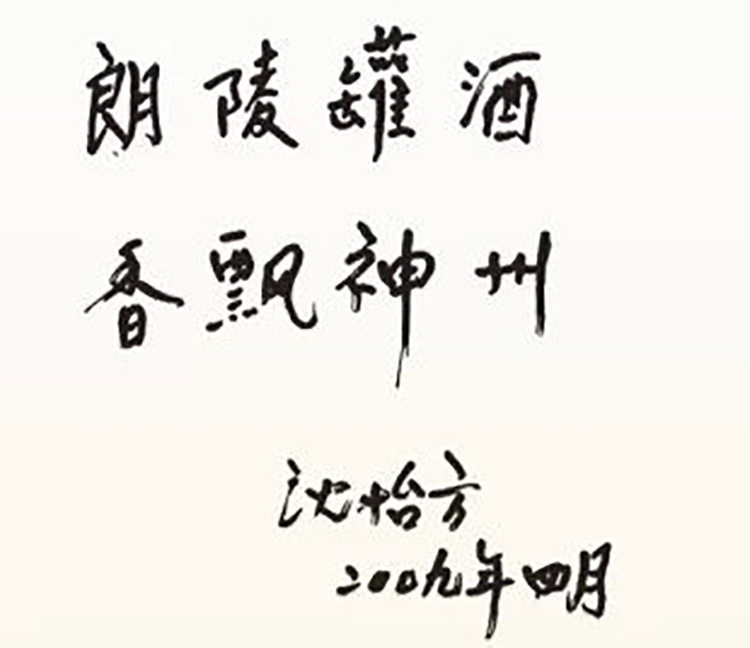 朗陵罐酒
香飘神州
沈怡方
二〇〇九年四月